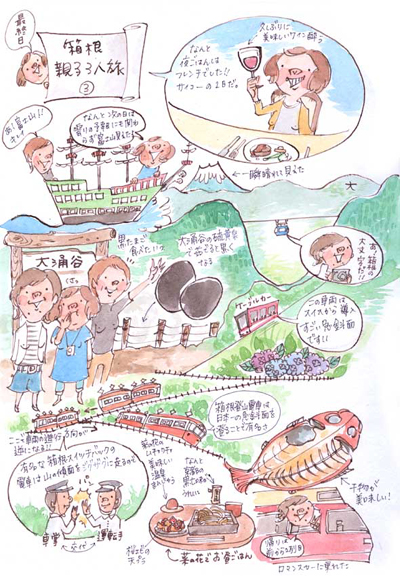 最終日
箱根
親子3人旅
③
久しぶりに
美味しいワイン飲む
なんと
夜ごはんは
フレンチでした!!
サイコーの1日だ。
あ!富士山!!
なんと次の日は
曇りの予報にも関わ
らず富士山見れた
←一瞬晴れて見えた
大
あ!箱根の
大文字だ!!
黒たまご
食べたいな
大涌谷の硫黄
で茹でると黒く
なる
大涌谷
くさっ
ケーブルカー
この車両は
スイスから導入
すごい急斜面
です!!
箱根登山電車は
日本一の急斜面を
登ることで有名さ
ここで車両の進行方向が
逆になる!!
有名な箱根スイッチバックの
電車は山の傾斜をジグザグに走るので
車掌
交代
運転手
美味しい
温泉
なんと
桜エビの
天プラ
→菜の花でお昼ごはん
干物が
美味しい!
帰りは
前から2列目
ロマンスカーに乗れた